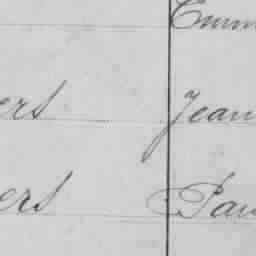 Emm
ers Jean
ers Pau